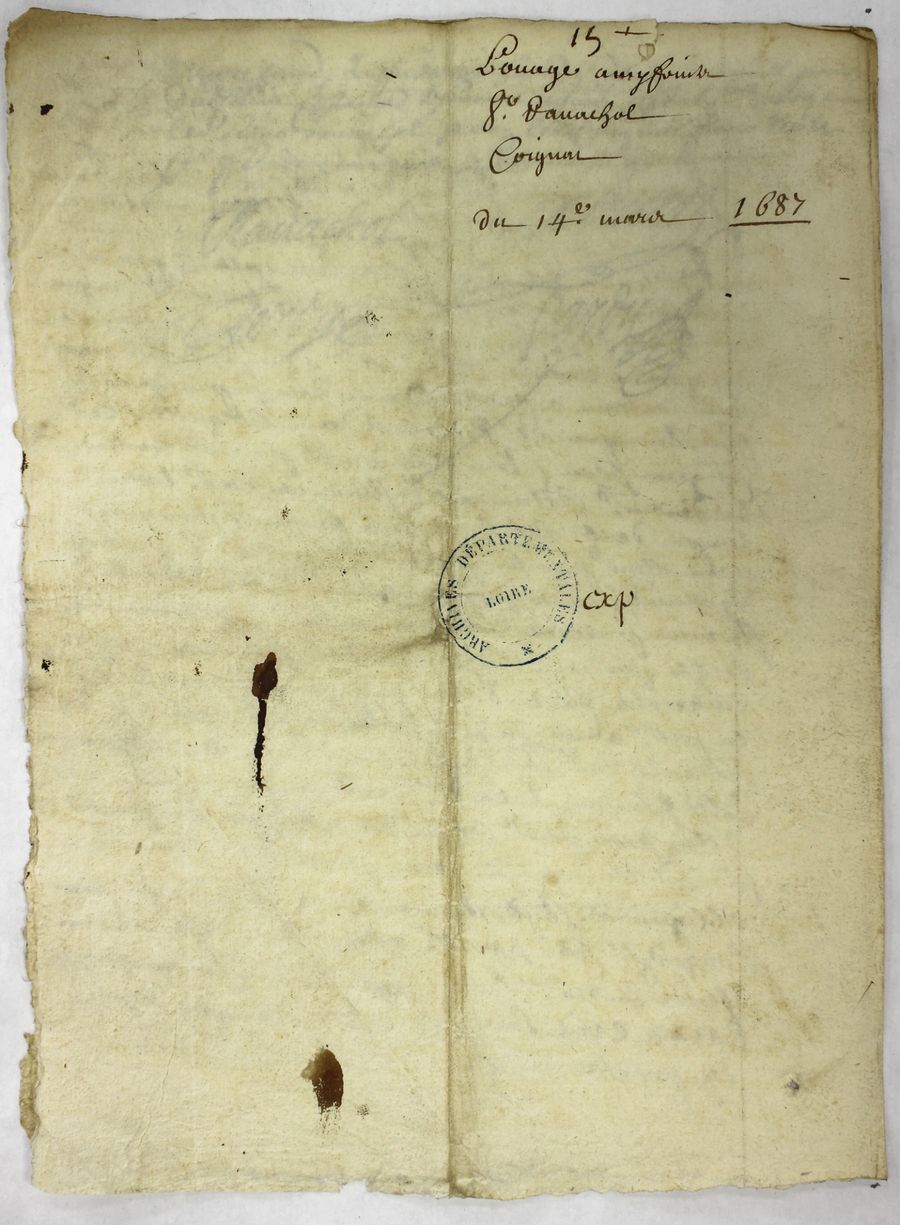 15 +
Louage a my fruicts
Sr. Ravachol
Coignet
du 14e. mars 1687
ARCHIVES DÉPARTEMENTALES
LOIRE
exp